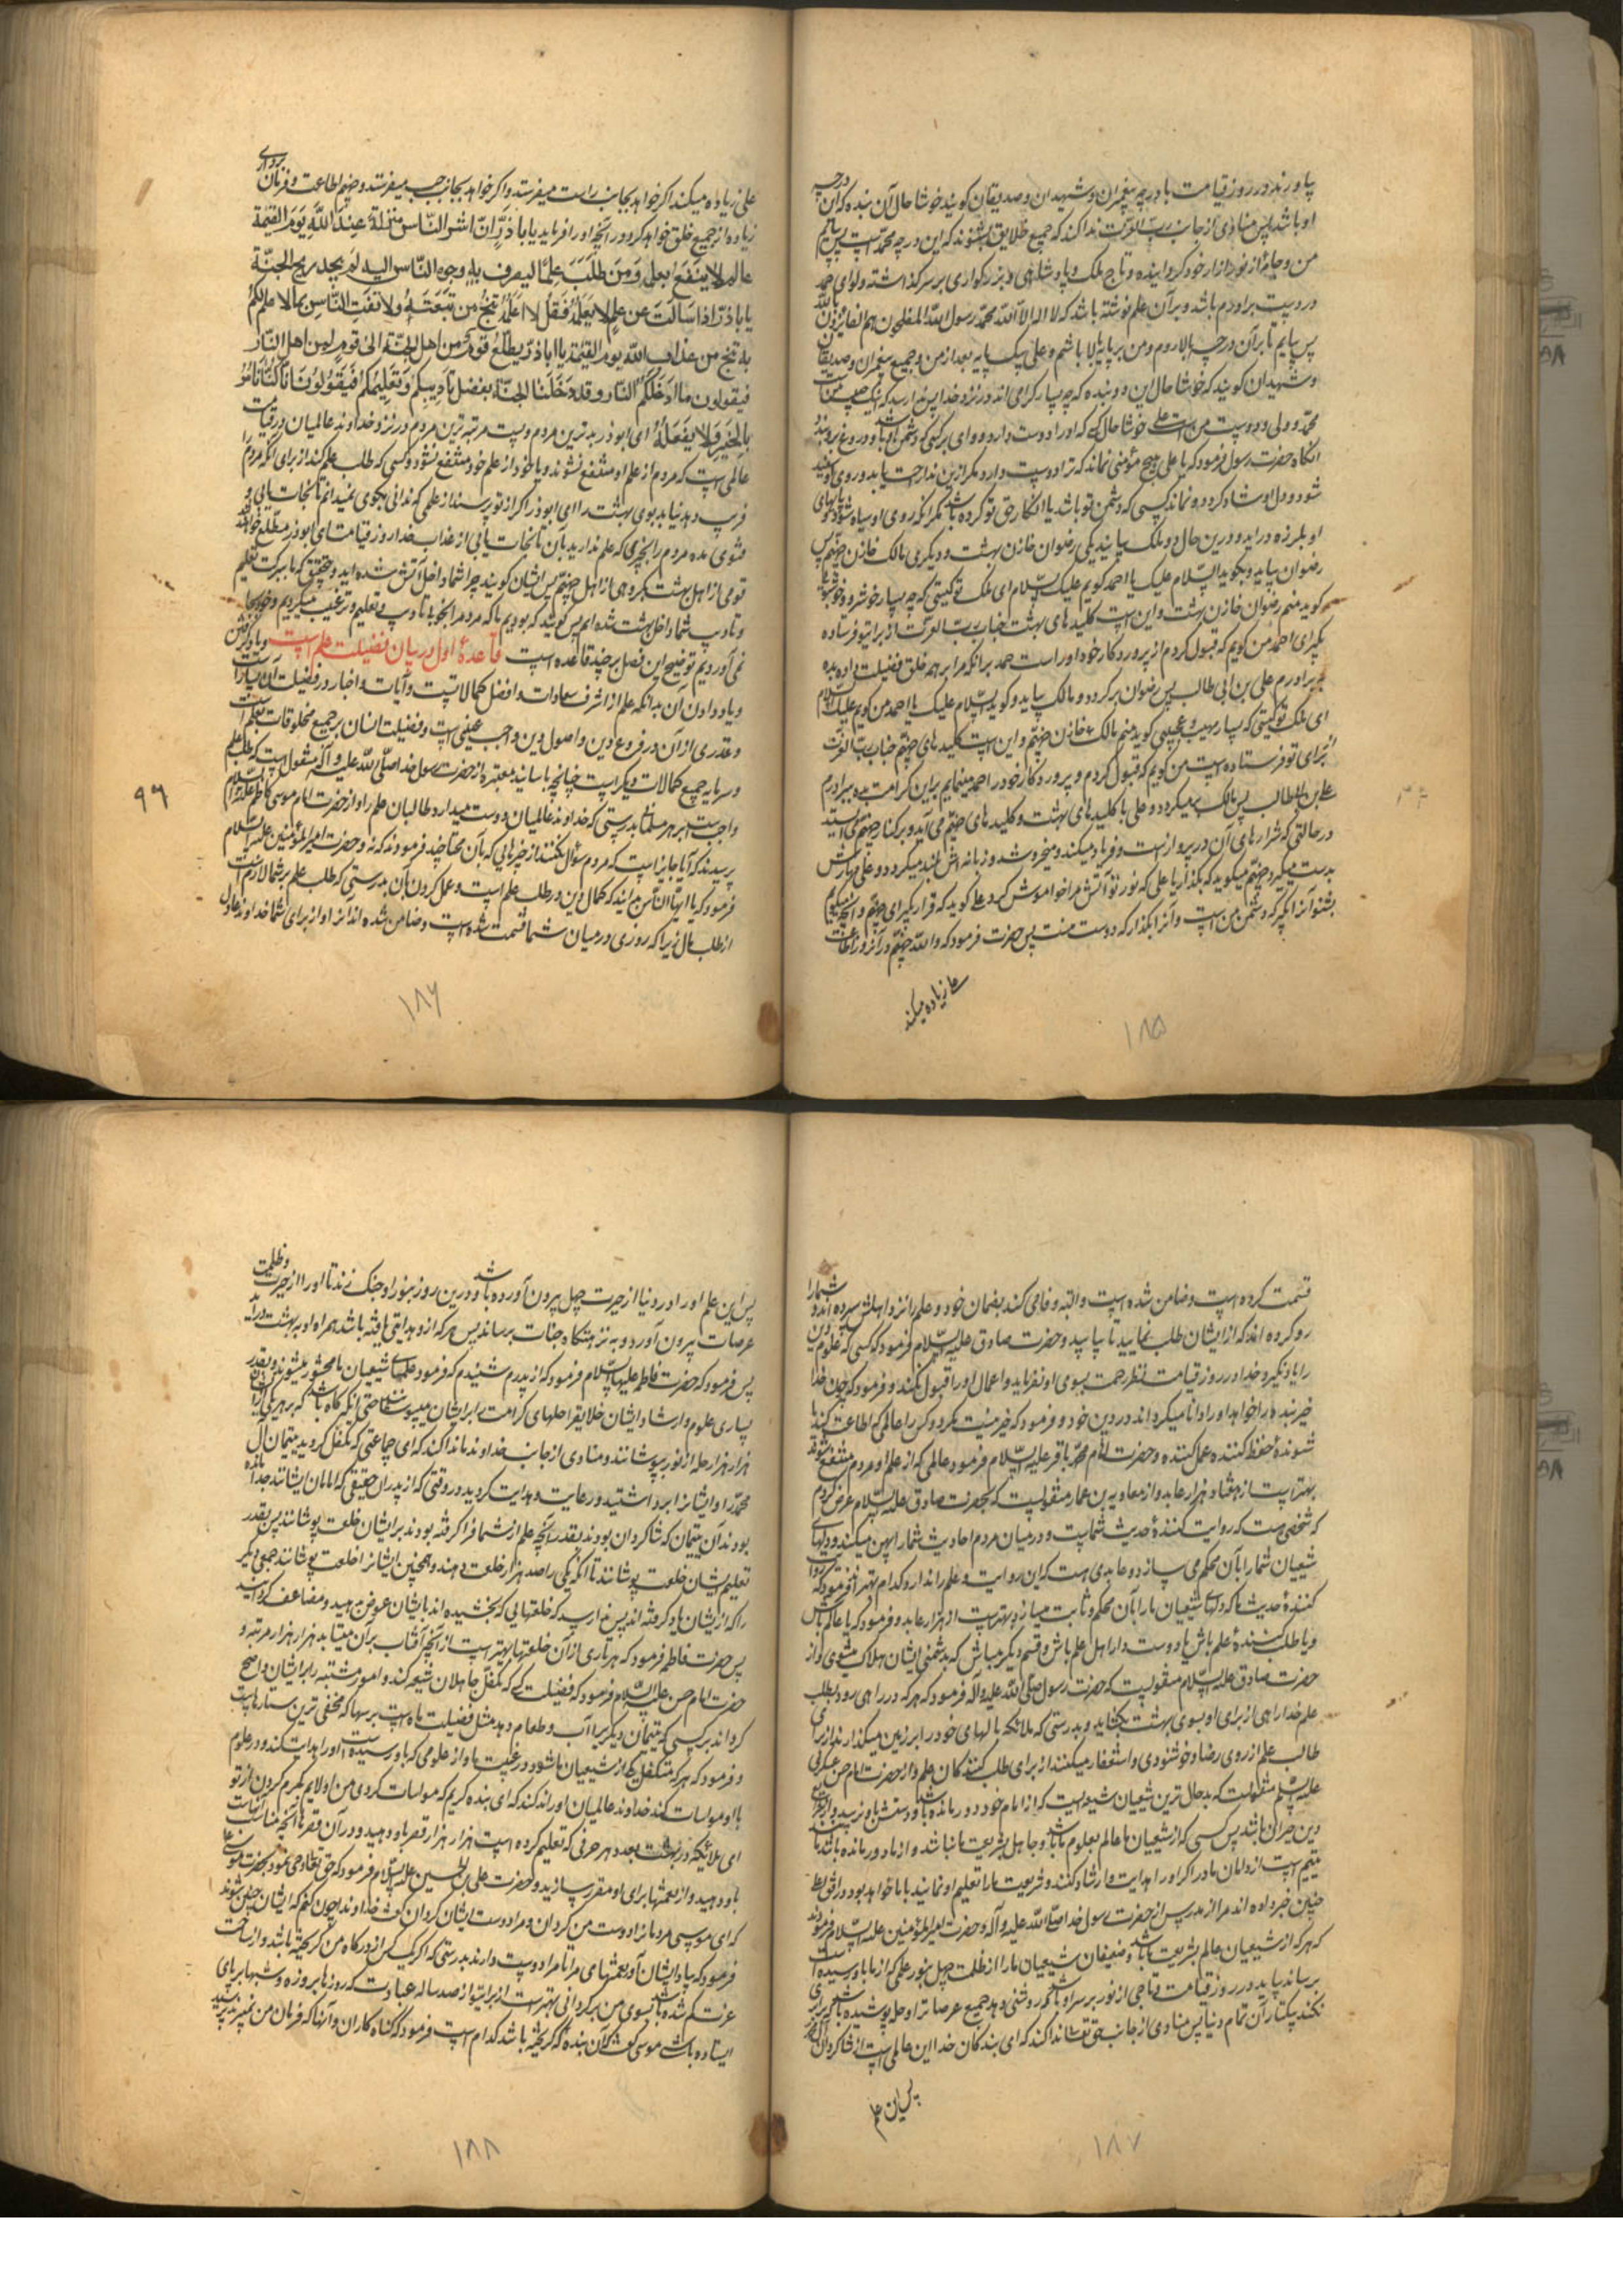 پا و رند در روز قیامت با درجه پیغمبران و شهیدان و صدیقان گویند خوشا حال آن بنده که این درجه
او باشد پس منادی از جانب رب العزت ندا کند که جمیع خلایق بشنوند که این درجه محمد است پس بیایم
من و جامهٔ از نور ازار خود کرده و تاج ملک و پادشاهی و بزرگواری بر سر گذاشته و لوای حمد
در دست برادرم باشد و بر آن علم نوشته باشد که لا اله الا الله محمد رسول الله المفلحون هم الفائزون بالله
پس بیایم تا بر آن درجه بالا روم و من بر پایهٔ بالا باشم و علی یک پایه بعد از من و جمیع پیغمبران و صدیقان
و شهیدان گویند که خوشا حال این دو بنده که چه بسیار گرامی اند در نزد خدا پس ندا رسد که اینک حبیب من است
محمد و ولی و دوست من است علی خوشا حال کسی که او را دوست دارد و وای بر کسی که دشمن او باشد و بر او دروغ بندد
انگاه حضرت رسول فرمود که یا علی هیچ مؤمنی نماند که ترا دوست دارد مگر ازین ندا راحت یابد و روی او سفید
شود و دل او شاد گردد و نماند کسی که دشمن تو باشد یا انکار حق تو کرده باشد مگر آنکه روی او سیاه شود و پاهای
او بلرزه در اید و درین حال دو ملک بیایند یکی رضوان خازن بهشت و دیگری مالک خازن جهنم پس
رضوان بیاید و بگوید السلام علیک یا احمد گویم علیک السلام ای ملک تو کیستی که چه بسیار خوشرو و خوشبویی
گوید منم رضوان خازن بهشت و این است کلیدهای بهشت جناب رب العزت از برای تو فرستاده
بگیر ای احمد من گویم که قبول کردم از پروردگار خود او راست حمد بر انکه مرا بر همه خلق فضیلت داده بده
برادرم علی بن ابی طالب پس رضوان برگردد و مالک بیاید و گوید السلام علیک یا احمد من گویم علیک السلام
ای ملک تو کیستی که بسیار مهیب و عجیبی گوید منم مالک خازن جهنم و این است کلیدهای جهنم جناب رب العزت
از برای تو فرستاده است من گویم که قبول کردم و پروردگار خود را حمد مینمایم بر این کرامت بده ببرادرم
علی بن ابیطالب پس مالک برمیگردد و علی با کلیدهای بهشت و کلیدهای جهنم می آید و بر کنار جهنم می ایستد
در حالتی که شرارهای آن در پرواز است و فریاد میکند و میخروشد و زبانه اش بلند میگردد و علی مهارش
بدست میگیرد جهنم میگوید که بگذار یا علی که نور تو آتش مرا خاموش کرد علی گوید که قرار گیر ای جهنم و آنچه میگویم
بشنو آنرا بگیر که دشمن من است و آنرا بگذار که دوست منست پس حضرت فرمود که والله جهنم در آنروز اطاعت
علی زیاده میکند
۱۸۵
علی زیاده میکند اگر خواهد بجانب راست میفرستد و اگر خواهد بجانب چپ میفرستد و جهنم اطاعت و فرمان برداری
زیاده از جمیع خلق خواهد کرد در آنچه او را فرماید یا باذر ان اشر الناس منزلة عند الله یوم القیمة
عالم لا ینتفع بعلمه و من طلب علما لیصرف به وجوه الناس الیه لم یجد ریح الجنة
یا باذر اذا سالت عن علم لا تعلمه فقل لا اعلمه تنج من تبعته ولا تفت الناس بما لا علم لک
به تنج من عذاب الله یوم القیمة یا اباذر یطلع قوم من اهل الجنة الی قوم من اهل النار
فیقولون ما ادخلکم النار و قد دخلنا الجنة بفضل تادیبکم و تعلیمکم فیقولون انا کنا نامر
بالخیر و لا نفعله ای ابوذر بدترین مردم و پست مرتبه ترین مردم در نزد خداوند عالمیان در قیامت
عالمی است که مردم از علم او منتفع نشوند و یا خود از علم خود منتفع نشود و کسی که طلب علم کند از برای انکه مردم را
فریب دهد نیابد بوی بهشت را ای ابوذر اگر از تو پرسند از علمی که ندانی بگوی نمیدانم تا نجات یابی و
فتوی مده مردم را بچیزی که علم نداری بآن تا نجات یابی از عذاب خدا روز قیامت ای ابوذر مطلع خواهند شد
قومی از اهل بهشت بگروهی از اهل جهنم پس ایشان گویند چرا شما داخل آتش شده اید و بتحقیق که ما ببرکت تعلیم
و تادیب شما داخل بهشت شده ایم پس گویند که بودیم ما که مردم را بخوبی تادیب و تعلیم و ترغیب میکردیم و خود بجا
نمی آوردیم توضیح این فصل بر چند قاعده است قاعدهٔ اول در بیان فضیلت علم است و یاد گرفتن
و یاد دادن آن بدانکه علم از اشرف سعادات و افضل کمالاتیست و آیات و اخبار در فضیلت آن بسیار است
و قدری از آن در فروع دین و اصول دین واجب عینی است و فضیلت انسان بر جمیع مخلوقات بعلم است
و سرمایه جمیع کمالات دیگر است چنانچه باسانید معتبره از حضرت رسول خدا صلی الله علیه و آله منقول است که طلب علم
واجب است بر هر مسلمانی بدرستی که خداوند عالمیان دوست میدارد طالبان علم را و از حضرت امام موسی کاظم علیه السلام
پرسیدند که آیا جایز است که مردم سؤال نکنند از چیزهایی که بآن محتاجند فرمودند که نه و حضرت امیر المؤمنین علیه السلام
فرمود که یا ایها الناس بدانید که کمال دین در طلب علم است و عمل کردن بآن بدرستی که طلب علم بر شما لازم است
از طلب مال زیرا که روزی در میان شما قسمت شده است و ضامن شده اند انرا و از برای شما خداوند عادل
۹۶
۱۸۶
قسمت کرده است و ضامن شده است و البته وفا می کند بضمان خود و علم را نزد اهلش سپرده اند و شما را
رو کرده اند که از ایشان طلب نمایید تا بیابید و حضرت صادق علیه السلام فرمود که کسی که علوم دین
را یاد نگیرد خدا در روز قیامت نظر رحمت بسوی او نفرماید و اعمال او را قبول نکند و فرمود که چون خدا
خیر بنده را خواهد او را دانا میگرداند در دین خود و فرمود که خیر نیست مگر دو کس را عالمی که اطاعت کنند یا
شنوندهٔ حفظ کننده عمل کننده و حضرت امام محمد باقر علیه السلام فرمود عالمی که از علم او مردم منتفع شوند
بهتر است از هفتاد هزار عابد و از معاویه بن عمار منقولست که بحضرت صادق علیه السلام عرض کردم
که شخصی هست که روایت کنندهٔ حدیث شماست و در میان مردم احادیث شما را پهن میکند و دلهای
شیعیان شما را بآن محکم می سازد و عابدی هست که این روایت و علم را ندارد کدام بهتر اند فرمود که روایت
کنندهٔ حدیث ما که دلهای شیعیان ما را بآن محکم و ثابت میسازد بهتر است از هزار عابد و فرمود که یا عالم باش
و یا طلب کنندهٔ علم باش یا دوستدار اهل علم باش و قسم دیگر مباش که بدشمنی ایشان هلاک میشوی و از
حضرت صادق علیه السلام منقولست که حضرت رسول صلی الله علیه و آله فرمود که هر که در راهی رود بطلب
علم خدا راهی از برای او بسوی بهشت بگشاید و بدرستی که ملائکه بالهای خود را بر زمین میگذارند از برای
طالب علم از روی رضا و خوشنودی و استغفار میکنند از برای طلب کنندگان علم و از حضرت امام حسن عسکری
علیه السلام منقولست که بدحال ترین شیعیان شیعه ایست که از امام خود دور مانده باشد و دستش باو نرسد و در شرایع
دین حیران باشد پس کسی که از شیعیان ما عالم بعلوم ما باشد و جاهل بشریعت ما نباشد و از ما دور مانده باشد
یتیم است در دامان ما و را اگر او را هدایت و ارشاد کنند و شریعت ما را تعلیم او نمایند با ما خواهد بود در رفیق اعلی
چنین خبر داده اند مرا از پدرم پس از حضرت رسول خدا صلی الله علیه و آله و حضرت امیر المؤمنین علیه السلام فرمودند
که هر که از شیعیان عالم بشریعت باشد و ضعیفان شیعیان ما را از ظلمت جهل بنور علمی که از ما باو رسیده است
برساند بیاید در روز قیامت و تاجی از نور بر سر او باشد که روشنی دهد جمیع عرصات را و حله پوشیده باشد که برابری
نکند یکتار آن تمام دنیا پس منادی از جانب حق تعالی ندا کند که ای بندگان خدا این عالمی است از شاگردان آل محمد
پس این علم
۱۸۷
پس این علم او را در دنیا از حیرت جهل بیرون آورده باشد و درین روز بنور او چنگ زند تا او را از حیرت و ظلمت
عرصات بیرون آورد و به نزهتگاه جنات برساند پس هر که ازو هدایتی یافته باشد همراه او به بهشت در آید
پس فرمود که حضرت فاطمه علیها السلام فرمود که از پدرم شنیدم که فرمود علمای شیعیان ما محشور میشوند و بقدر
بسیاری علوم و ارشاد ایشان خلایق را حلهای کرامت را بر ایشان میپوشانند حتی انکه گاه باشد که بر هر یکی ازیشان
هزار هزار حله از نور بپوشانند و منادی از جانب خداوند ما ندا کند که ای جماعتی که متکفل گردیدید یتیمان آل
محمد را و ایشانرا برداشتید و رعایت و هدایت کردید در وقتی که از پدران حقیقی که امامان ایشانند جدا مانده
بودند آن یتیمان که شاگردان بودند بقدر آنچه علم از شما فرا گرفته بودند بر ایشان خلعت پوشانند پس بقدر
تعلیم ایشان خلعت پوشانند تا آنکه یکی را صد هزار خلعت دهند و همچنین ایشانرا خلعت پوشانند جمعی دیگر
را که ازیشان یاد گرفته اند پس ندا رسد که خلعتهایی که بخشیده اند بایشان عوض دهید و مضاعف گردانید
پس حضرت فاطمه فرمود که هر تاری از آن خلعتها بهتر است از آنچه آفتاب بر آن میتابد هزار هزار مرتبه و
حضرت امام حسن علیه السلام فرمود که فضیلت کسی که متکفل جاهلان شیعه کند و امور مشتبه را بر ایشان واضح
گرداند بر کسی که یتیمان دیگر را آب و طعام دهد مثل فضیلت ماه است بر سها که مخفی ترین ستارهاست
و فرمود که هر که متکفل یکی از شیعیان ما شود در غیبت ما و از علومی که باو رسیده است او را هدایت کند و در علوم
با او مواسات کند خداوند عالمیان او را ندا کند که ای بنده کریم که مواسات کردی من اولایم بکرم کردن از تو
ای ملائیکه در بهشت بعدد هر حرفی که تعلیم کرده است هزار هزار قصر باو دهید و در آن قصرها آنچه مناسب است
باو دهید و از نعمتها برای او مقرر سازید و حضرت علی بن الحسین علیه السلام فرمود که حق تعالی وحی نمود بحضرت موسی
که ای موسی مردمانرا دوست من گردان و مرا دوست ایشان گردان گفت خداوندا چون کنم که ایشان چنین شوند
فرمود که بیاد ایشان آور نعمتهای مرا تا مرا دوست دارند بدرستی که اگر یک کس از درگاه من گریخته باشد و از ساحت
عزتم گم شده باشد بسوی من برگردانی بهتر است از برایت از صد ساله عبادت که روزها بروزه و شبها بر پای
ایستاده باشی موسی گفت که آن بنده که گریخته باشد کدام است فرمود که گناه کاران و آنها که فرمان من نمیبرند پرسید
۱۸۸